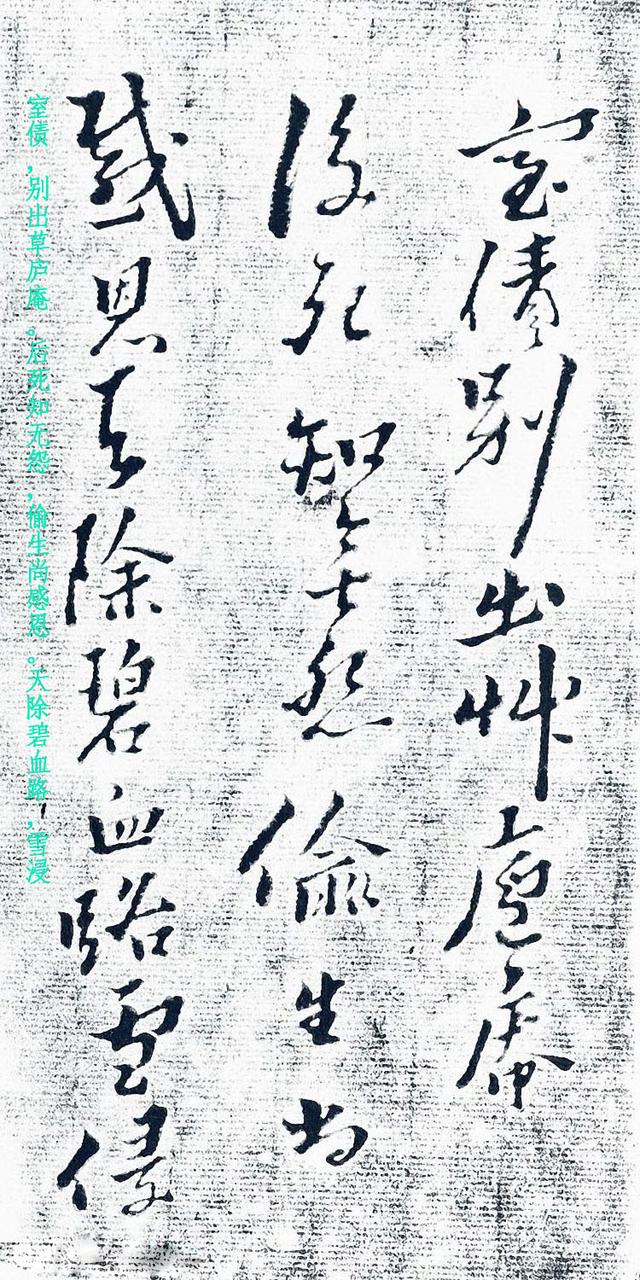 室債別出艸廬庵
後死知無怨偷生尚
感恩天除碧血路雪侵
室债，别出草庐庵。后死知无怨，偷生尚感恩。天除碧血路，雪浸